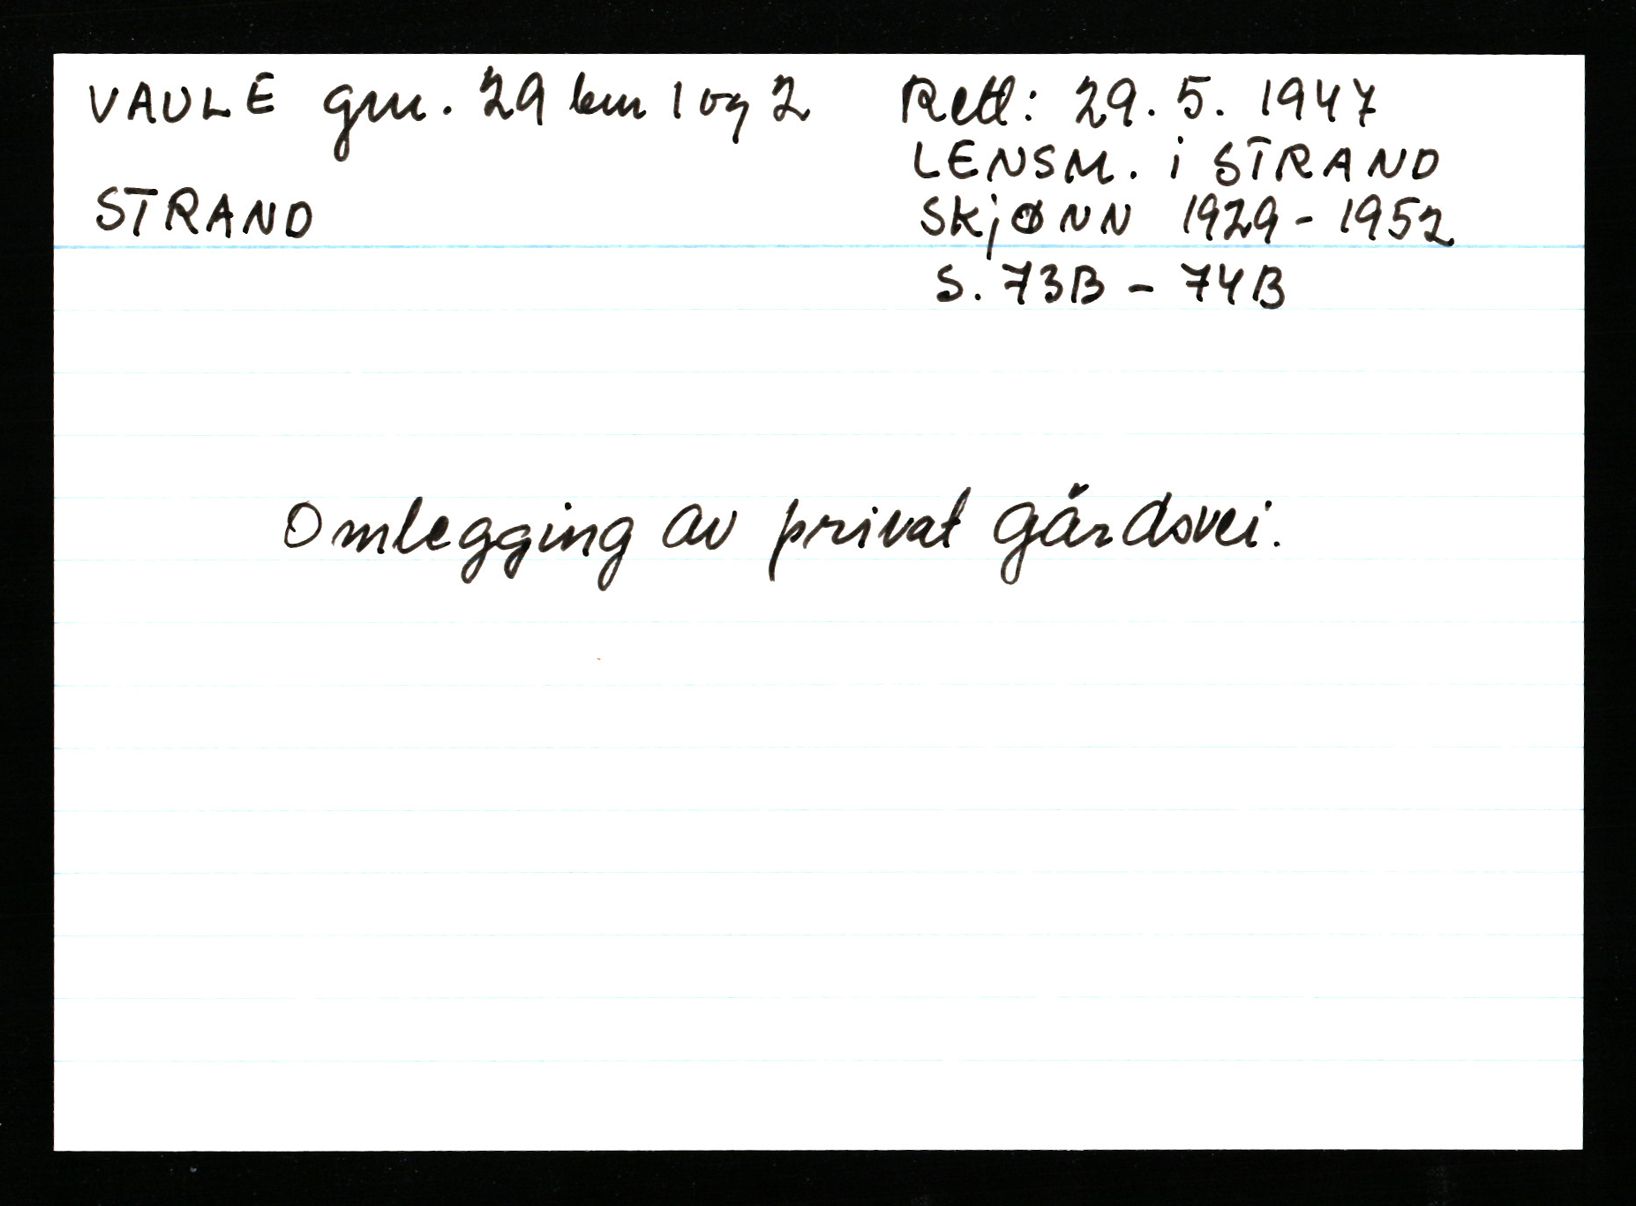 VAULE gnr. 29 bnr 1 og 2
STRAND
Rettl: 29. 5. 1947
LENSM. i STRAND
SKJØNN 1929 - 1952
S. 73B - 74B
Omlegging av privat gårdsvei.